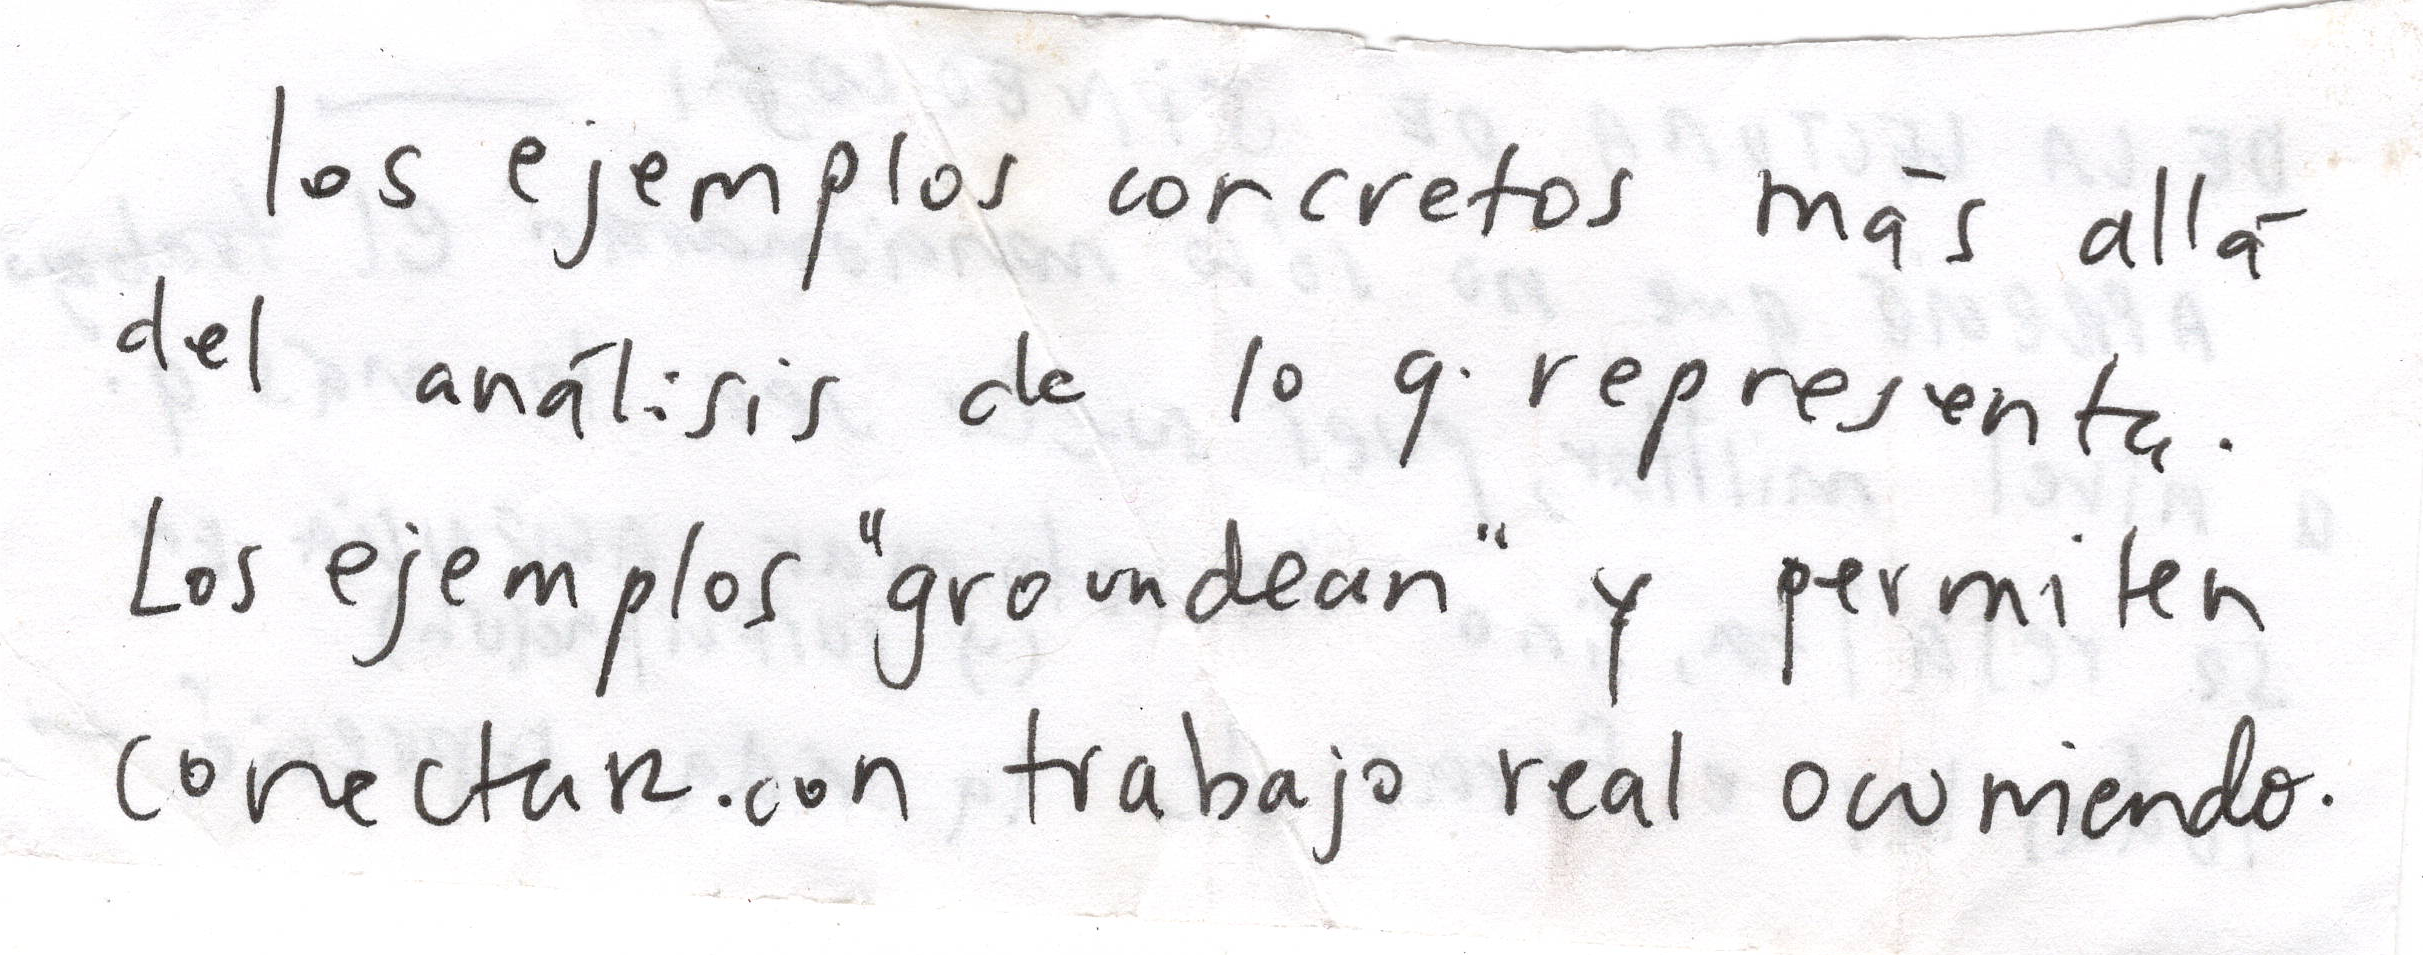 los ejemplos concretos más allá
del análisis de lo q. representa.
Los ejemplos "groundean" y permiten
conectar.con trabajo real ocurriendo.